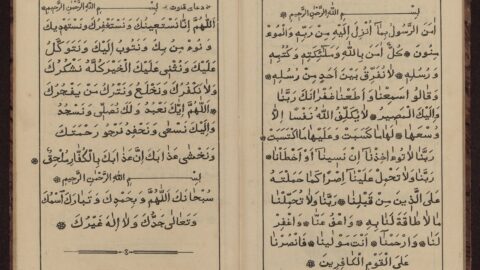 بِسْمِ اللهِ الرَّحْمٰنِ الرَّحِيمِ
اٰمَنَ الرَّسُولُ بِمَا اُنْزِلَ اِلَيْهِ مِنْ رَبِّهِ وَالْمُوءْ
مِنُونَ ۞ كُلٌّ اٰمَنَ بِاللهِ وَمَلٰئِكَتِهِ وَكُتُبِهِ
وَرُسُلِهِ ۞ لَا نُفَرِّقُ بَيْنَ اَحَدٍ مِنْ رُسُلِهِ ۞
وَقَالُوا سَمِعْنَا وَاَطَعْنَا غُفْرَانَكَ رَبَّنَا
وَاِلَيْكَ الْمَصِيرُ ۞ لَا يُكَلِّفُ اللهُ نَفْسًا اِلَّا
وُسْعَهَا ۞ لَهَا مَا كَسَبَتْ وَعَلَيْهَا مَا اكْتَسَبَتْ ۞
رَبَّنَا لَا تُوءَاخِذْنَا اِنْ نَسِينَا اَوْ اَخْطَاْنَا ۞
رَبَّنَا وَلَا تَحْمِلْ عَلَيْنَا اِصْرًا كَمَا حَمَلْتَهُ
عَلَى الَّذِينَ مِنْ قَبْلِنَا ۞ رَبَّنَا وَلَا تُحَمِّلْنَا
مَا لَا طَاقَةَ لَنَا بِهِ ۞ وَاعْفُ عَنَّا ۞ وَاغْفِرْ
لَنَا ۞ وَارْحَمْنَا ۞ اَنْتَ مَوْلٰينَا ۞ فَانْصُرْنَا
عَلَى الْقَوْمِ الْكَافِرِينَ
دعاى قنوت ۞ بِسْمِ اللهِ الرَّحْمٰنِ الرَّحِيمِ
اَللّٰهُمَّ اِنَّا نَسْتَعِينُكَ وَنَسْتَغْفِرُكَ وَنَسْتَهْدِيكَ
وَنُوءْمِنُ بِكَ وَنَتُوبُ اِلَيْكَ وَنَتَوَكَّلُ
عَلَيْكَ وَنُثْنِى عَلَيْكَ الْخَيْرَ كُلَّهُ نَشْكُرُكَ
وَلَا نَكْفُرُكَ وَنَخْلَعُ وَنَتْرُكُ مَنْ يَفْجُرُكَ
۞ اَللّٰهُمَّ اِيَّاكَ نَعْبُدُ وَلَكَ نُصَلِّى وَنَسْجُدُ
وَاِلَيْكَ نَسْعٰى وَنَحْفِدُ نَرْجُو رَحْمَتَكَ
وَنَخْشٰى عَذَابَكَ اِنَّ عَذَابَكَ بِالْكُفَّارِ مُلْحِقٌ ۞
بِسْمِ اللهِ الرَّحْمٰنِ الرَّحِيمِ
سُبْحَانَكَ اللّٰهُمَّ وَبِحَمْدِكَ وَتَبَارَكَ اسْمُكَ
وَتَعَالٰى جَدُّكَ وَلَا اِلٰهَ غَيْرُكَ ۞